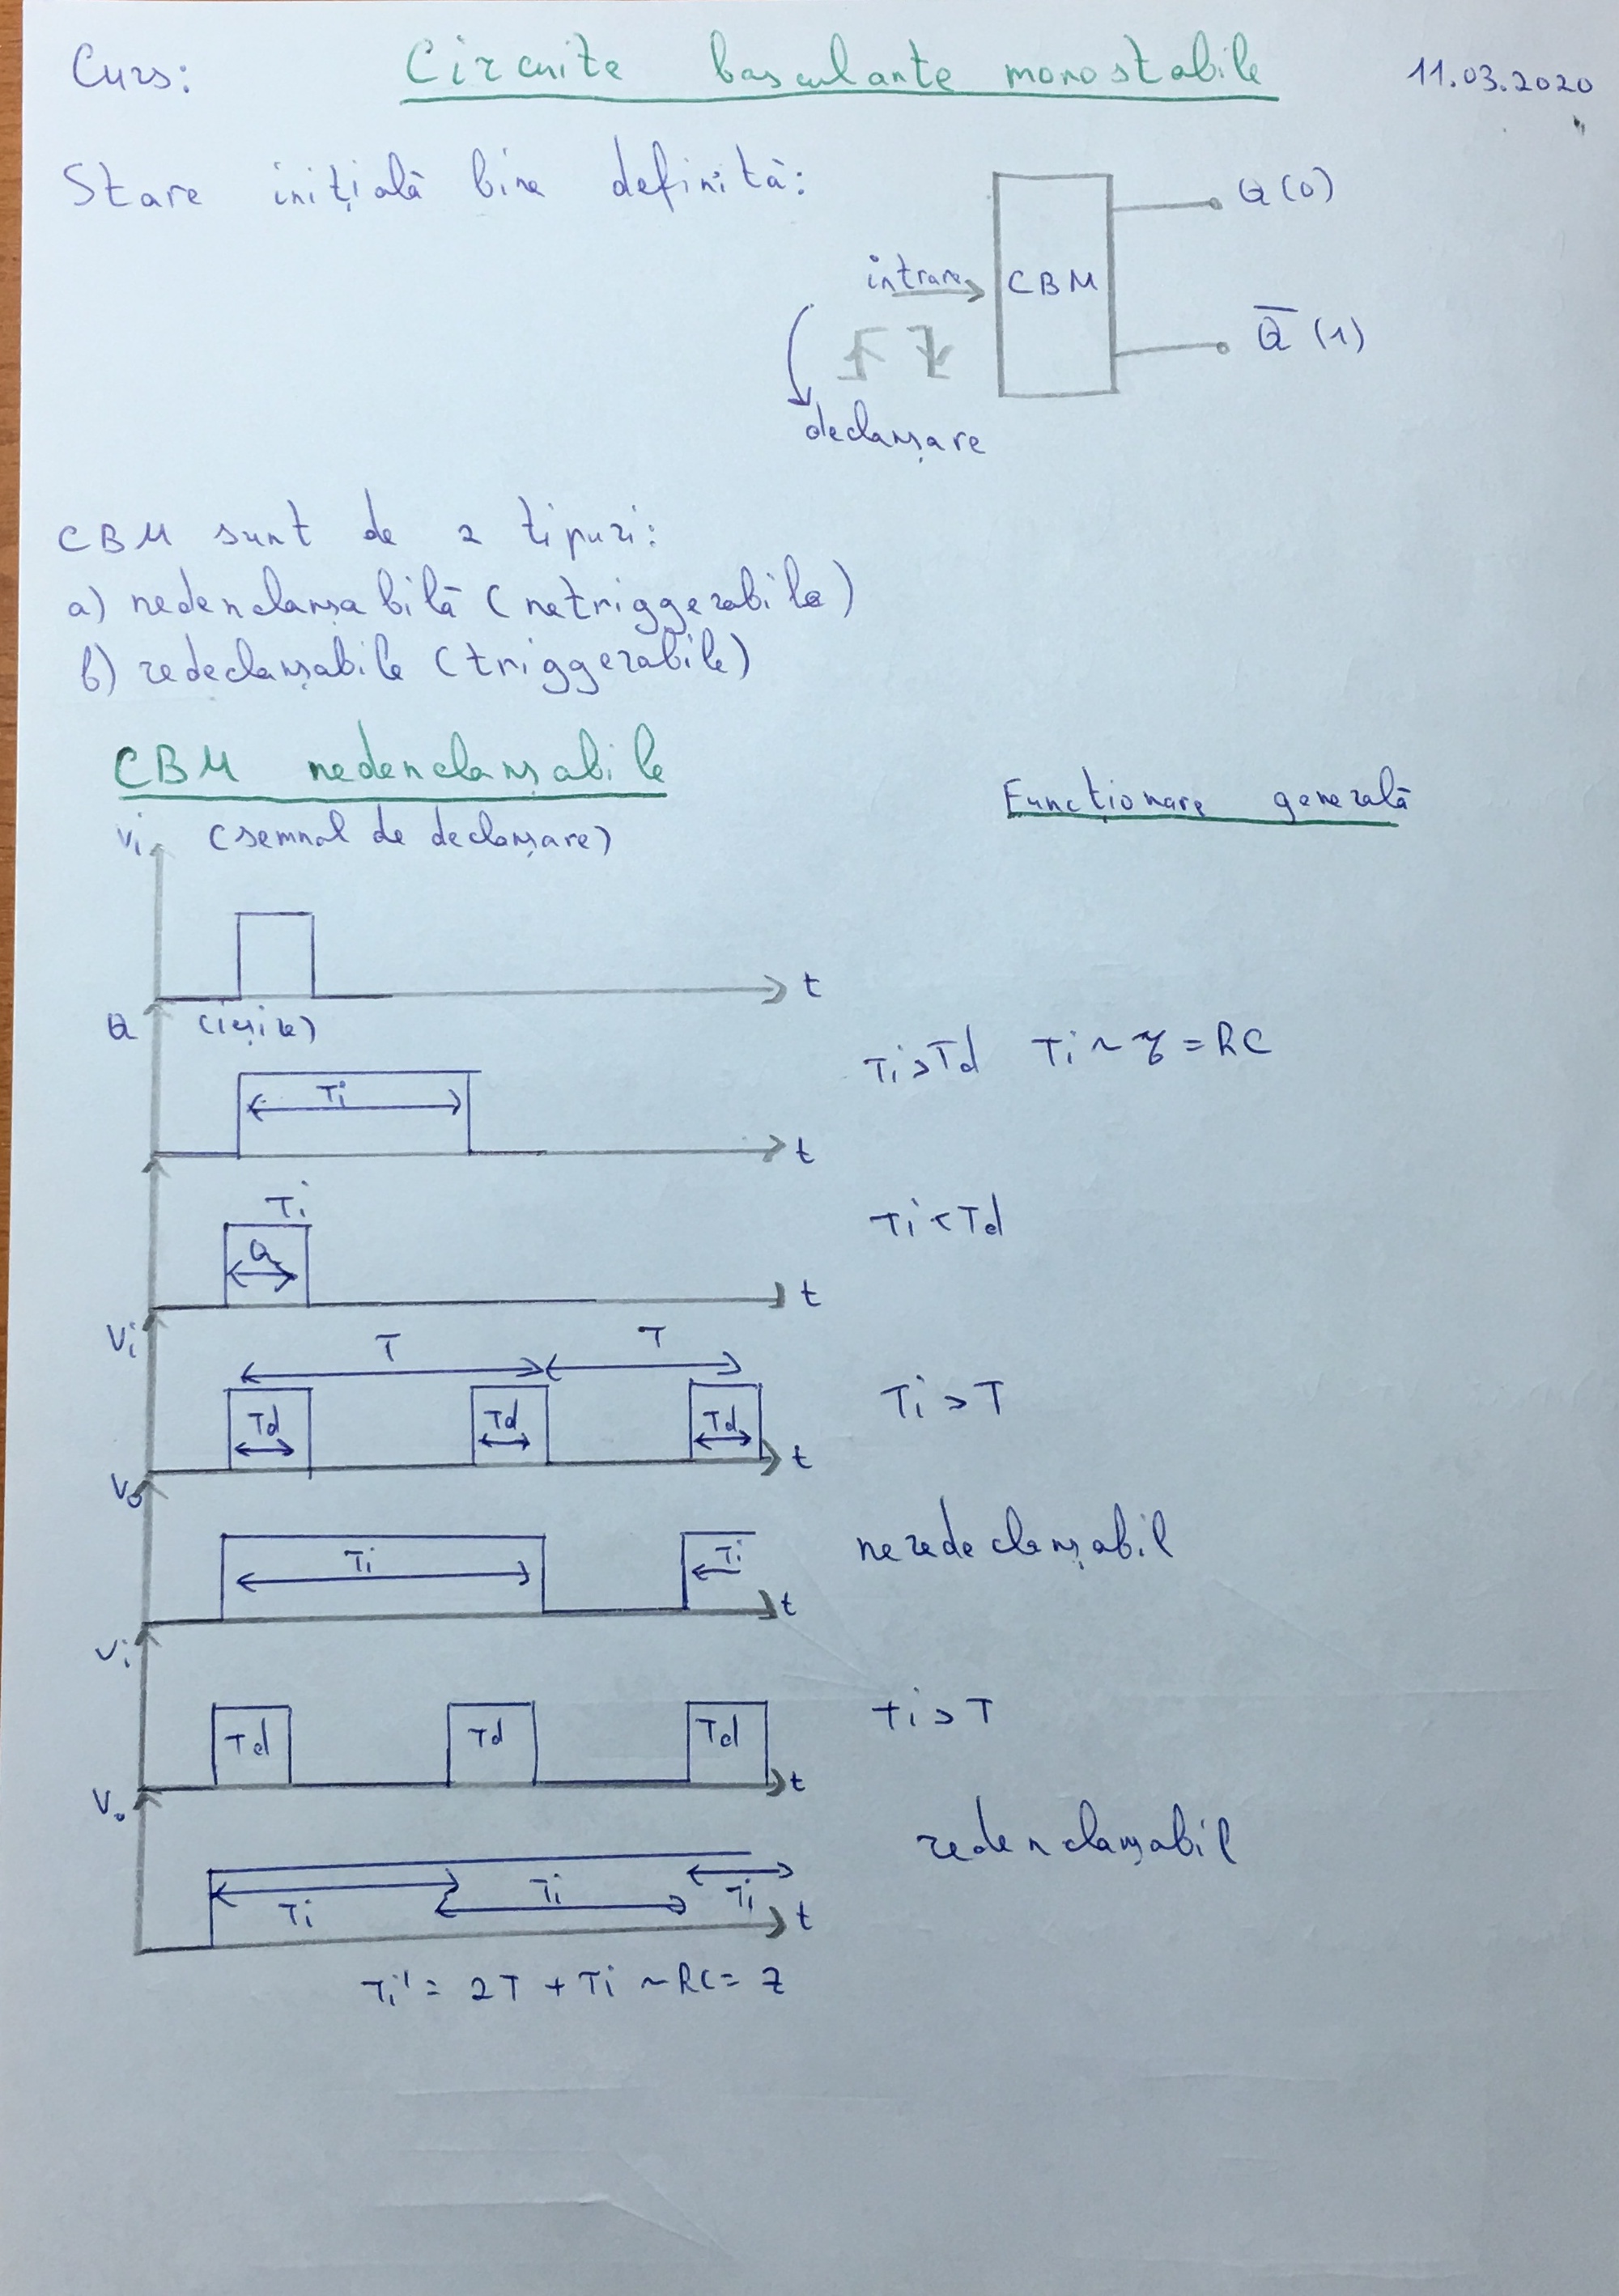 Curs: Circuite basculante monostabile 11.03.2020
Stare inițială bine definită:
Q(0)
intrare
CBM
Q̅ (1)
declanșare
CBM sunt de 2 tipuri:
a) nedenclanșabilă (netriggerabile)
b) redeclanșabile (triggerabile)
CBM nedenclanșabile
Funcționare generală
Vi (semnal de declanșare)
t
Q (ieșire)
Ti>Td Ti ~ τ = RC
Ti
t
Ti
Ti<Td
Q
t
Vi
T T
Ti>T
Td Td Td
t
Vo
neredeclanșabil
Ti Ti
t
Vi
Ti>T
Td Td Td
t
Vo
redenclanșabil
Ti Ti Ti
t
Ti' = 2T + Ti ~ RC = Z